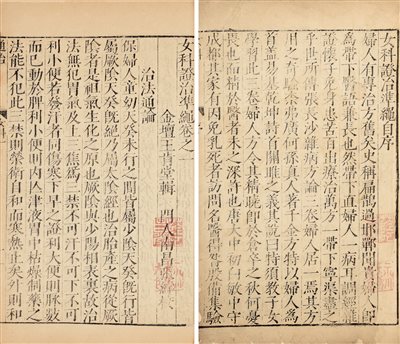 女科證治準繩自序
婦人有專治方舊矣史稱扁鵲過邯鄲聞貴婦人即
為帶下醫語兼長也然帶下直婦人一病耳調經雜
證懷子免身患苦百出療治萬方一帶下寧
乎世所傳張長沙雜病方論三卷婦人居一焉其方
用之奇驗
孫真人著千金方特以婦人為
首蓋易基乾坤詩首關雎之義其說曰特須教子女
學此三卷婦人方令其精曉即於倉卒之秋何憂
畏也而精於醫者未之深許也唐大中初白敏中守
成都其家有因免乳死者訪問名醫得
備集驗
女科證治準繩卷之一
金壇王肯堂輯
門人南昌
治法通論
保婦人童幼天癸未行之間皆屬少陰天癸既行皆
屬厥陰天癸既絕乃屬太陰經也治胎產之病從厥
陰者是祖氣生化之原也厥陰與少陽相表裏故治
法無犯胃氣及上二焦為三禁不可汗不可下不可
利小便若發汗者同傷寒下早之證利大便則脈數
而已動於脾利小便則內亡津液胃中枯燥制藥之
法能不犯此三禁則榮衛自和而寒熱止矣外則和